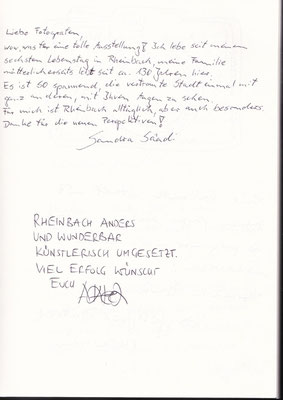 Liebe Fotografen,
wow, was für eine tolle Ausstellung! Ich lebe seit meinem
sechsten Lebenstag in Rheinbach, meine Familie
mütterlicherseits lebt seit ca. 130 Jahren hier.
Es ist so spannend, die vertraute Stadt einmal mit
ganz anderen, mit Ihren Augen zu sehen.
Für mich ist Rheinbach alltäglich, aber auch besonders.
Danke für die neuen Perspektiven!
Sandra
RHEINBACH ANDERS
UND WUNDERBAR
KÜNSTLERISCH UMGESETZT.
VIEL ERFOLG WÜNSCHT
EUCH